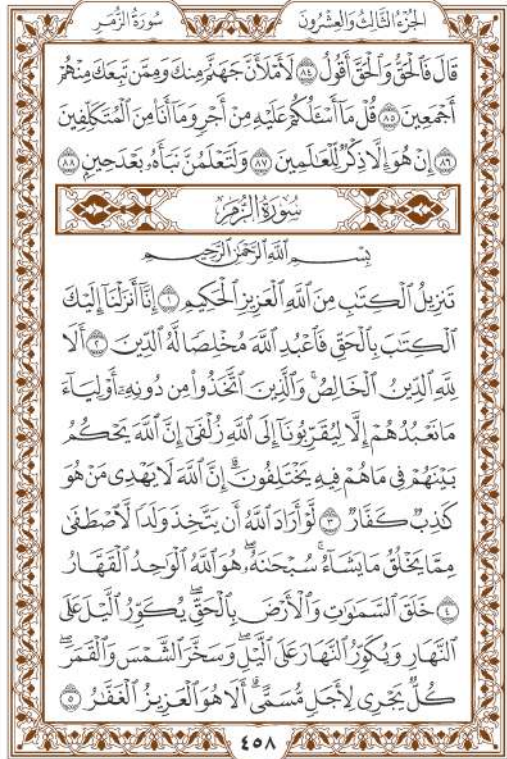 الجزء الثالث والعشرون سورة الزمر
قَالَ فَٱلۡحَقُّ وَٱلۡحَقَّ أَقُولُ ٨٤ لَأَمۡلَأَنَّ جَهَنَّمَ مِنكَ وَمِمَّن تَبِعَكَ مِنۡهُمۡ
أَجۡمَعِينَ ٨٥ قُلۡ مَآ أَسۡـَٔلُكُمۡ عَلَيۡهِ مِنۡ أَجۡرٖ وَمَآ أَنَا۠ مِنَ ٱلۡمُتَكَلِّفِينَ
٨٦ إِنۡ هُوَ إِلَّا ذِكۡرٞ لِّلۡعَٰلَمِينَ ٨٧ وَلَتَعۡلَمُنَّ نَبَأَهُۥ بَعۡدَ حِينِۭ ٨٨
سُورَةُ الزُّمَرِ
بِسۡمِ ٱللَّهِ ٱلرَّحۡمَٰنِ ٱلرَّحِيمِ
تَنزِيلُ ٱلۡكِتَٰبِ مِنَ ٱللَّهِ ٱلۡعَزِيزِ ٱلۡحَكِيمِ ١ إِنَّآ أَنزَلۡنَآ إِلَيۡكَ
ٱلۡكِتَٰبَ بِٱلۡحَقِّ فَٱعۡبُدِ ٱللَّهَ مُخۡلِصٗا لَّهُ ٱلدِّينَ ٢ أَلَا
لِلَّهِ ٱلدِّينُ ٱلۡخَالِصُۚ وَٱلَّذِينَ ٱتَّخَذُواْ مِن دُونِهِۦٓ أَوۡلِيَآءَ
مَا نَعۡبُدُهُمۡ إِلَّا لِيُقَرِّبُونَآ إِلَى ٱللَّهِ زُلۡفَىٰٓ إِنَّ ٱللَّهَ يَحۡكُمُ
بَيۡنَهُمۡ فِي مَا هُمۡ فِيهِ يَخۡتَلِفُونَۗ إِنَّ ٱللَّهَ لَا يَهۡدِي مَنۡ هُوَ
كَٰذِبٞ كَفَّارٞ ٣ لَّوۡ أَرَادَ ٱللَّهُ أَن يَتَّخِذَ وَلَدٗا لَّٱصۡطَفَىٰ
مِمَّا يَخۡلُقُ مَا يَشَآءُۚ سُبۡحَٰنَهُۥۖ هُوَ ٱللَّهُ ٱلۡوَٰحِدُ ٱلۡقَهَّارُ
٤ خَلَقَ ٱلسَّمَٰوَٰتِ وَٱلۡأَرۡضَ بِٱلۡحَقِّۖ يُكَوِّرُ ٱلَّيۡلَ عَلَى
ٱلنَّهَارِ وَيُكَوِّرُ ٱلنَّهَارَ عَلَى ٱلَّيۡلِۖ وَسَخَّرَ ٱلشَّمۡسَ وَٱلۡقَمَرَۖ
كُلّٞ يَجۡرِي لِأَجَلٖ مُّسَمًّىۗ أَلَا هُوَ ٱلۡعَزِيزُ ٱلۡغَفَّٰرُ ٥
٤٥٨